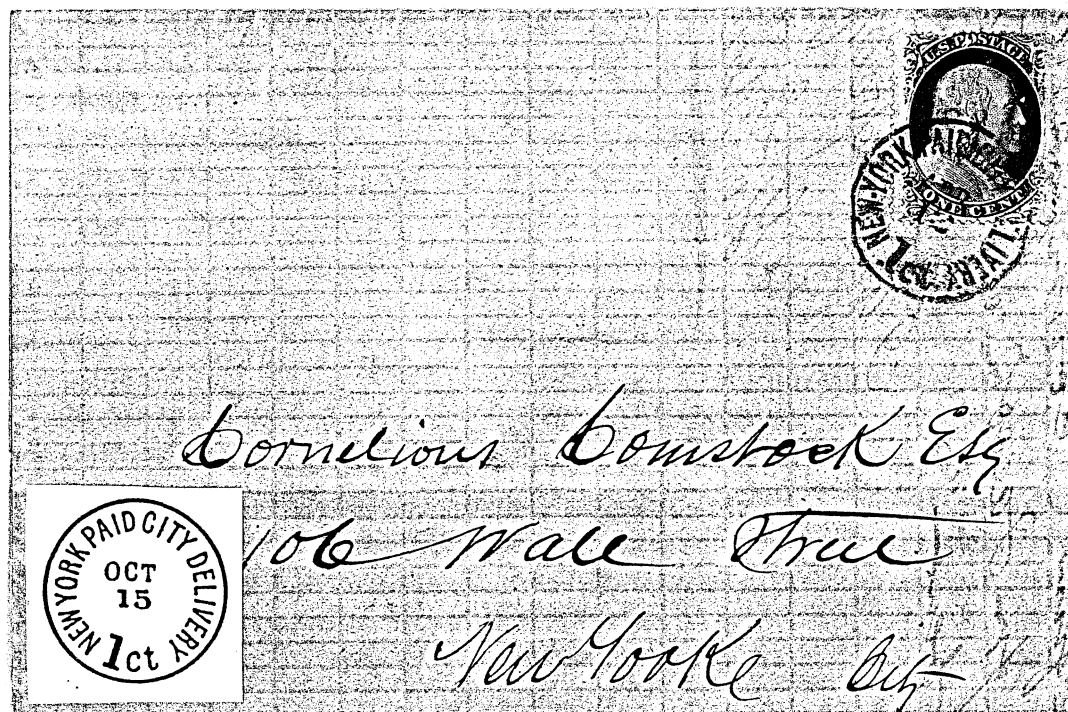 U.S. POSTAGE
ONE CENT
NEW-YORK PAID LIVERY
1ct
Cornelious Comstock Esq
106 Wall Street
New Yorke City
NEW YORK PAID CITY DELIVERY
OCT
15
1ct